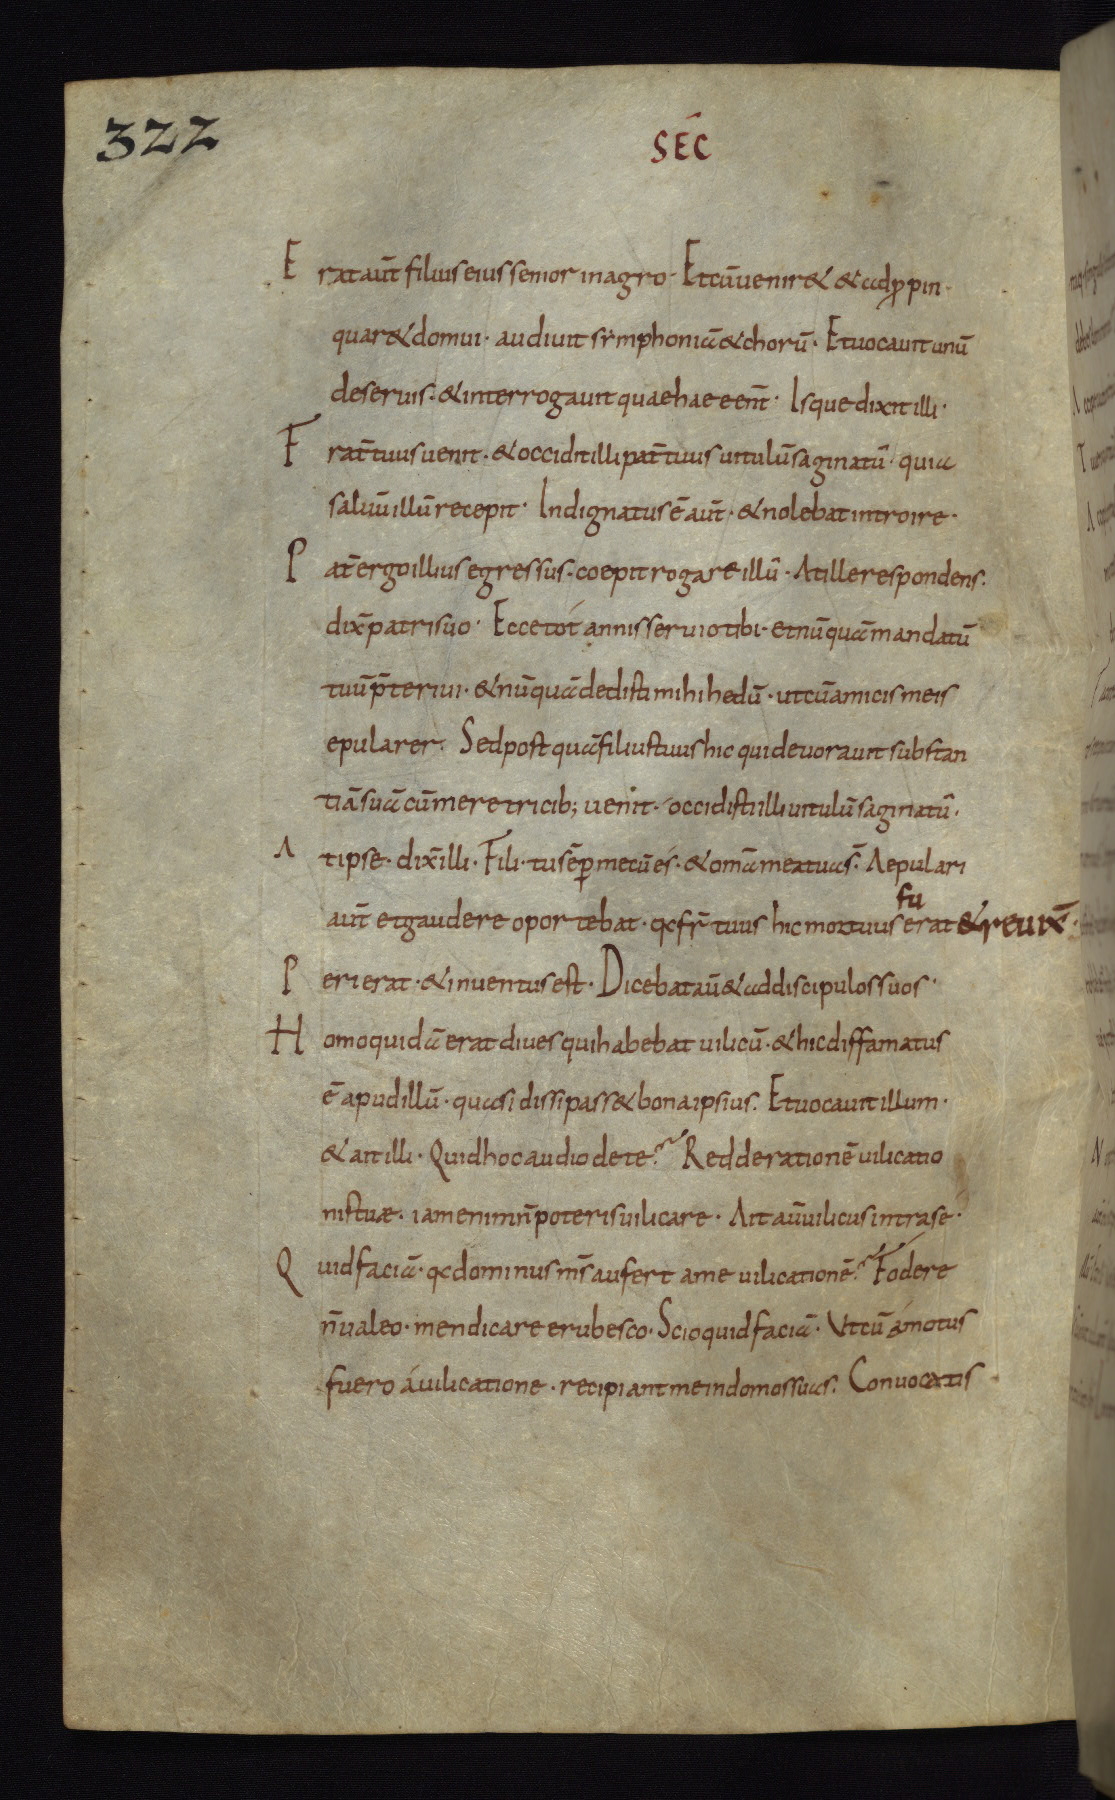 322
SEC̄
Erat aut̄ filius eius senior in agro· Et cū ueniret & ad ꝓpin·
quar& domui· audiuit sẏmphoniā & chorū· Et uocauit unū
de seruis· & interrogauit quae haec eēnt̄· Isque dixit illi·
Frat̄ tuus uenit· & occidit illi pat̄ tuus uitulū saginatū· quia
saluū illū recepit· Indignatus ē aut̄· & nolebat introire·
Pat̄ ergo illius egressus· coepit rogare illū· At ille respondens·
dix̄ patri suo· Ecce tót annis seruio tibi· et nūquā mandatū
tuū p̄teriui· & nūquā dedisti mihi hedū· ut cū amicis meis
epularer· Sed postquā filius tuus hic qui deuorauit substan
tiā suā cū meretricib; uenit· occidisti illi uitulū saginatū·
At ipse· dix̄ illi· Fili· tu sēp mecū és· & om̄a mea tua s̄· Aepulari
aut̄ et gaudere oportebat· qđ fr̄ tuus hic mortuus fuerat & reuix̄·
Perierat· & inuentus est· Dicebat aū & ad discipulos suos·
Homo quidā erat diues qui habebat uilicū· & hic diffamatus
ē apud illū· quasi dissipass& bona ipsius· Et uocauit illum·
& ait illi· Quid hoc audio de te? Redde rationē uilicatio
nis tuae· iam enim n̄ poteris uilicare· Ait aū uilicus intra se·
Quid faciā· qđ dominus m̄s aufert a me uilicationē? Fodere
n̄ ualeo· mendicare erubesco· Scio quid faciā· Ut cū ámotus
fuero á uilicatione· recipiant me in domos suas· Conuocatis